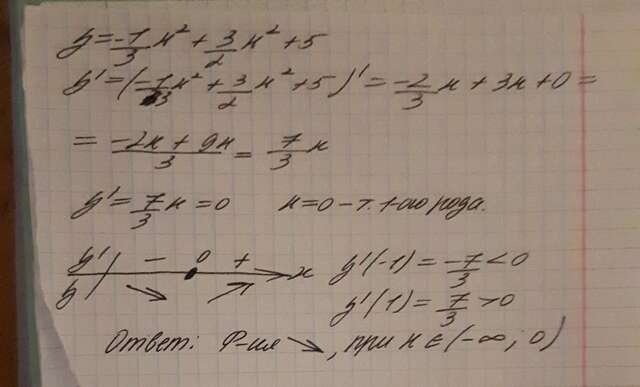 y = -1/3 x² + 3/2 x² + 5
y' = (-1/3 x² + 3/2 x² + 5)' = -2/3 x + 3x + 0 =
= (-2x + 9x)/3 = 7/3 x
y' = 7/3 x = 0 x=0 – т. 1-ого рода.
y' | – 0 + x y'(-1) = -7/3 < 0
y | ↘ ↗ y'(1) = 7/3 > 0
Ответ: Ф-ия ↘, при x ∈ (-∞; 0)